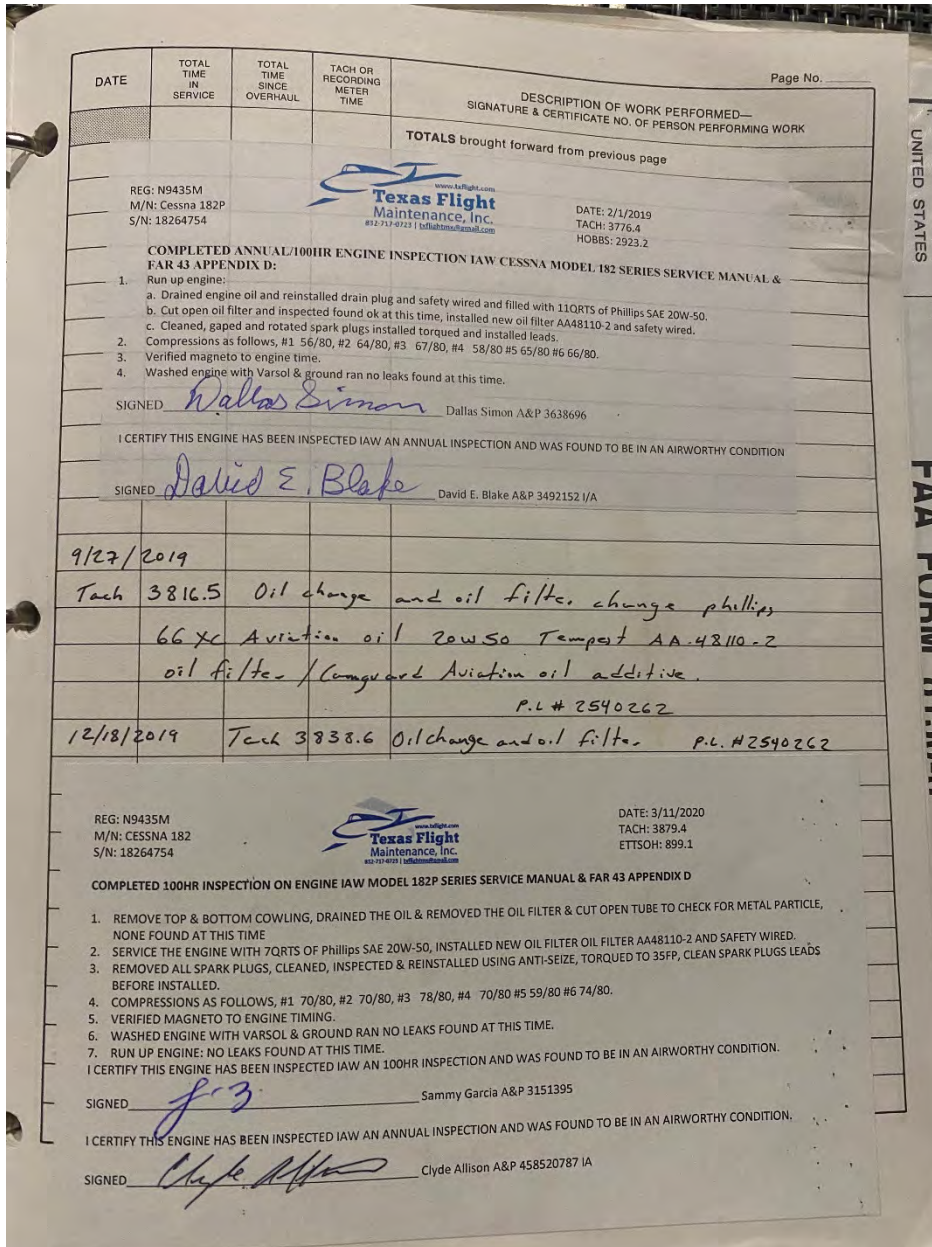 DATE
TOTAL TIME IN SERVICE
TOTAL TIME SINCE OVERHAUL
TACH OR RECORDING METER TIME
Page No.
DESCRIPTION OF WORK PERFORMED—
SIGNATURE & CERTIFICATE NO. OF PERSON PERFORMING WORK
TOTALS brought forward from previous page
REG: N9435M
M/N: Cessna 182P
S/N: 18264754
www.txflight.com
Texas Flight
Maintenance, Inc.
832-717-0723 | txflightmx@gmail.com
DATE: 2/1/2019
TACH: 3776.4
HOBBS: 2923.2
COMPLETED ANNUAL/100HR ENGINE INSPECTION IAW CESSNA MODEL 182 SERIES SERVICE MANUAL &
FAR 43 APPENDIX D:
1. Run up engine:
a. Drained engine oil and reinstalled drain plug and safety wired and filled with 11QRTS of Phillips SAE 20W-50.
b. Cut open oil filter and inspected found ok at this time, installed new oil filter AA48110-2 and safety wired.
c. Cleaned, gaped and rotated spark plugs installed torqued and installed leads.
2. Compressions as follows, #1 56/80, #2 64/80, #3 67/80, #4 58/80 #5 65/80 #6 66/80.
3. Verified magneto to engine time.
4. Washed engine with Varsol & ground ran no leaks found at this time.
SIGNED Dallas Simon Dallas Simon A&P 3638696
I CERTIFY THIS ENGINE HAS BEEN INSPECTED IAW AN ANNUAL INSPECTION AND WAS FOUND TO BE IN AN AIRWORTHY CONDITION
SIGNED David E. Blake David E. Blake A&P 3492152 I/A
9/27/2019
Tach 3816.5 Oil change and oil filter change phillips
66 XC Aviation oil 20W50 Tempest AA-48110-2
oil filter / Camguard Aviation oil additive.
P.L # 2540262
12/18/2019 Tach 3838.6 Oil change and oil filter P.L. #2540262
REG: N9435M
M/N: CESSNA 182
S/N: 18264754
www.txflight.com
Texas Flight
Maintenance, Inc.
832-717-0723 | txflightmx@gmail.com
DATE: 3/11/2020
TACH: 3879.4
ETTSOH: 899.1
COMPLETED 100HR INSPECTION ON ENGINE IAW MODEL 182P SERIES SERVICE MANUAL & FAR 43 APPENDIX D
1. REMOVE TOP & BOTTOM COWLING, DRAINED THE OIL & REMOVED THE OIL FILTER & CUT OPEN TUBE TO CHECK FOR METAL PARTICLE,
NONE FOUND AT THIS TIME
2. SERVICE THE ENGINE WITH 7QRTS OF Phillips SAE 20W-50, INSTALLED NEW OIL FILTER OIL FILTER AA48110-2 AND SAFETY WIRED.
3. REMOVED ALL SPARK PLUGS, CLEANED, INSPECTED & REINSTALLED USING ANTI-SEIZE, TORQUED TO 35FP, CLEAN SPARK PLUGS LEADS
BEFORE INSTALLED.
4. COMPRESSIONS AS FOLLOWS, #1 70/80, #2 70/80, #3 78/80, #4 70/80 #5 59/80 #6 74/80.
5. VERIFIED MAGNETO TO ENGINE TIMING.
6. WASHED ENGINE WITH VARSOL & GROUND RAN NO LEAKS FOUND AT THIS TIME.
7. RUN UP ENGINE: NO LEAKS FOUND AT THIS TIME.
I CERTIFY THIS ENGINE HAS BEEN INSPECTED IAW AN 100HR INSPECTION AND WAS FOUND TO BE IN AN AIRWORTHY CONDITION.
SIGNED Sammy Garcia A&P 3151395
I CERTIFY THIS ENGINE HAS BEEN INSPECTED IAW AN ANNUAL INSPECTION AND WAS FOUND TO BE IN AN AIRWORTHY CONDITION.
SIGNED Clyde Allison A&P 458520787 IA
UNITED STATES
FAA FORM